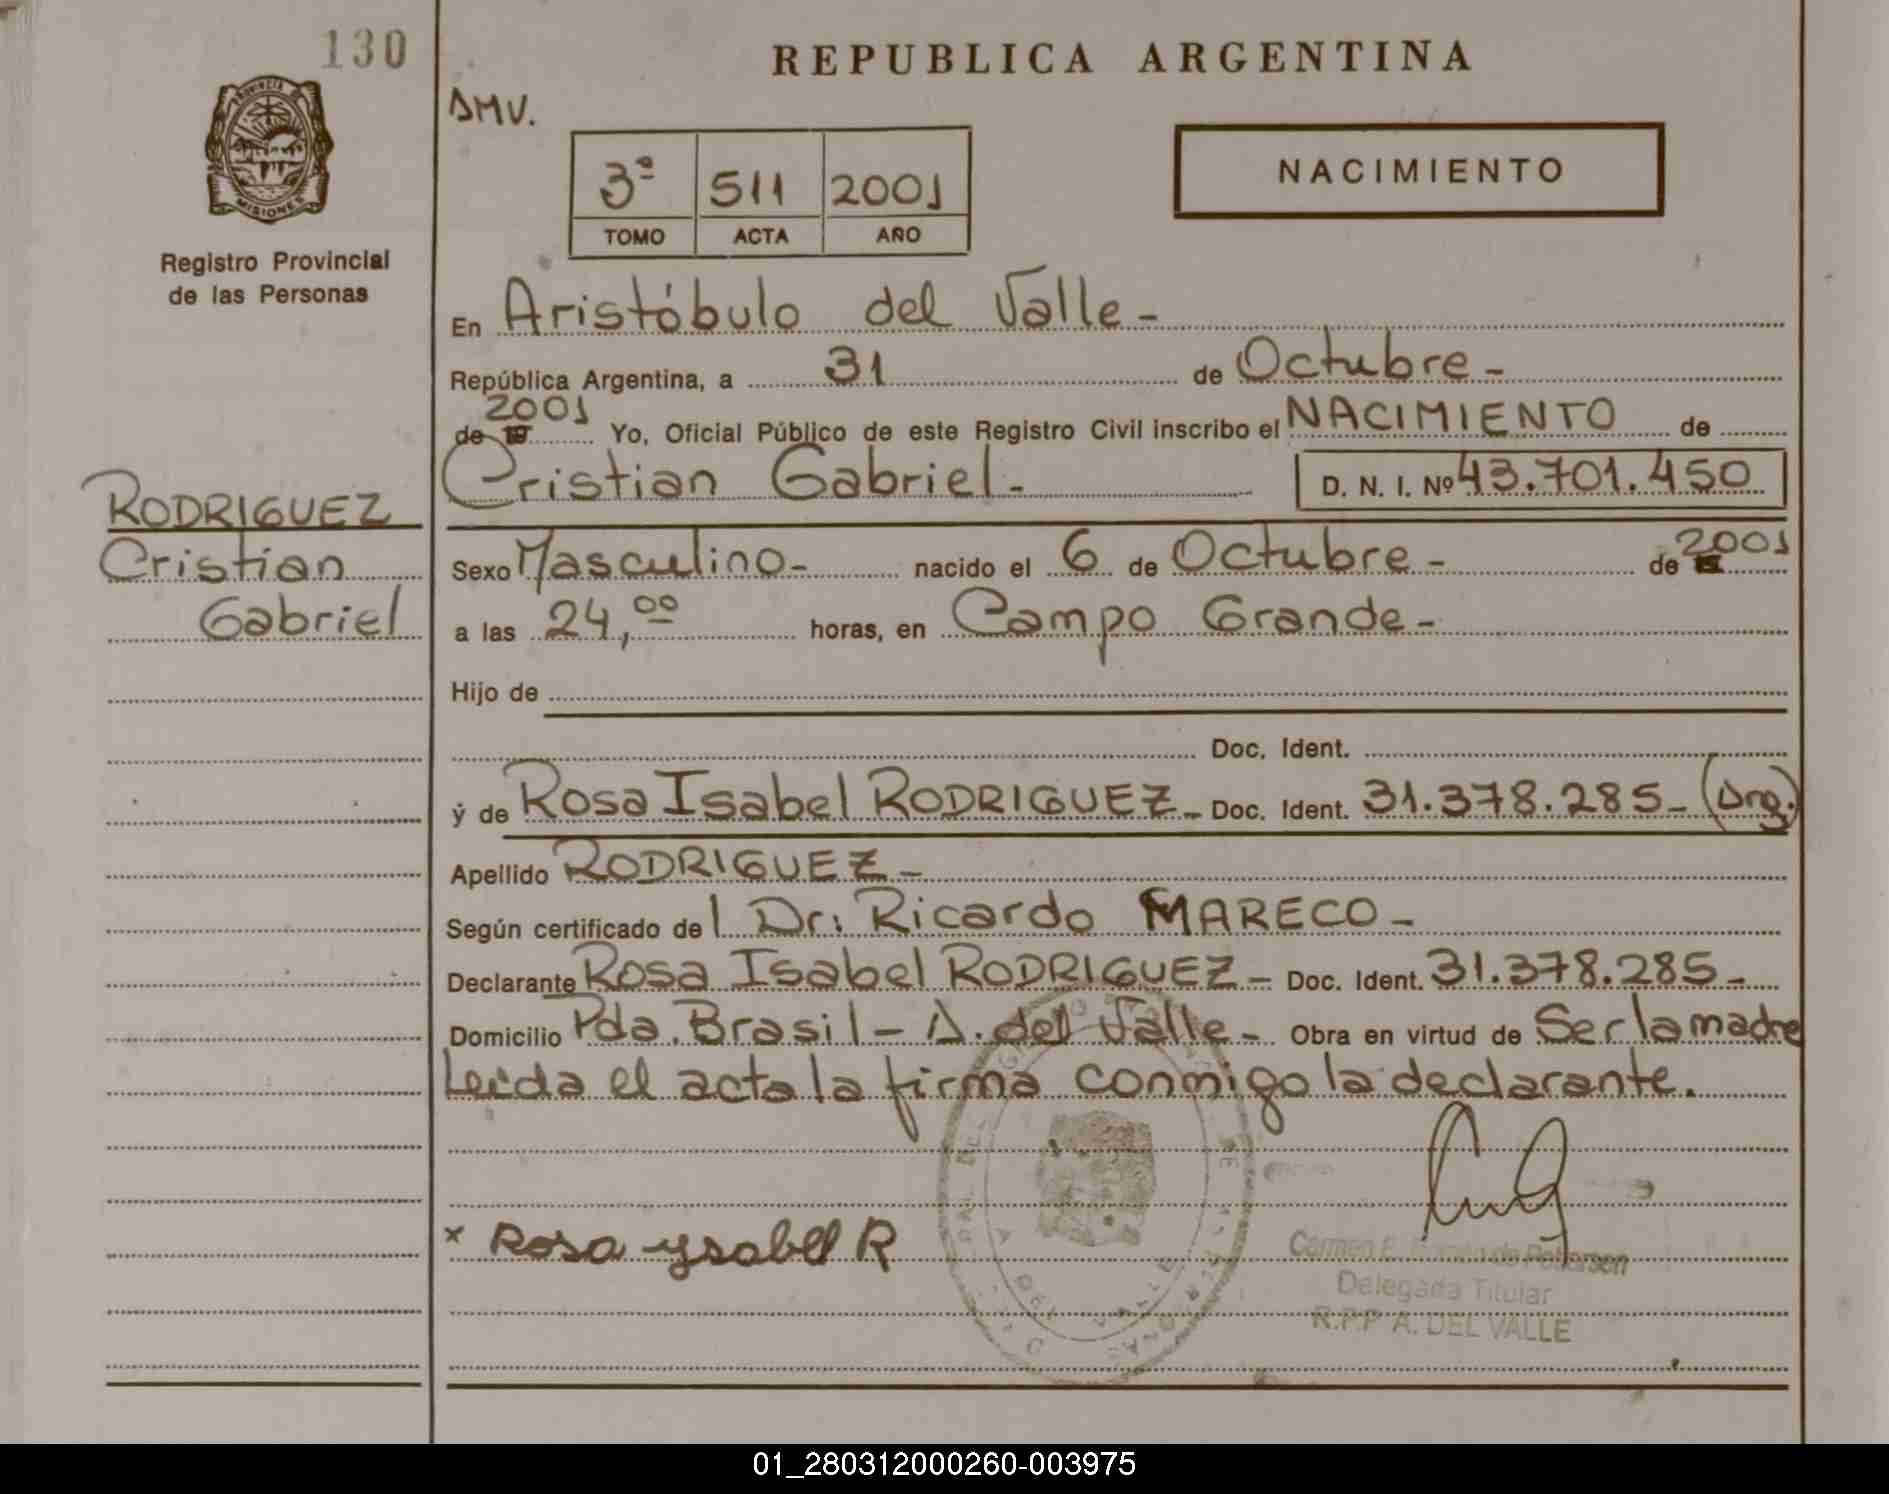 130
REPUBLICA ARGENTINA
AMV.
PROVINCIA DE
MISIONES
Registro Provincial
de las Personas
3ª 511 2001
TOMO ACTA AÑO
NACIMIENTO
En Aristóbulo del Valle -
República Argentina, a 31 de Octubre -
2001
de 19 Yo, Oficial Público de este Registro Civil inscribo el NACIMIENTO de
Cristian Gabriel. - D. N. I. Nº 43.701.450
RODRIGUEZ
Cristian
Gabriel
Sexo Masculino - nacido el 6 de Octubre - de 2001
a las 24,00 horas, en Campo Grande -
Hijo de
Doc. Ident.
y de Rosa Isabel RODRIGUEZ - Doc. Ident. 31.378.285 - (Arg.)
Apellido RODRIGUEZ -
Según certificado del Dr. Ricardo MARECO -
Declarante Rosa Isabel RODRIGUEZ - Doc. Ident. 31.378.285 -
Domicilio Pda. Brasil - A. del Valle - Obra en virtud de Ser la madre
Leída el acta la firma conmigo la declarante.
x Rosa ysabel R
A. DEL VALLE
Carmen E. de Petterson
Delegada Titular
R.P.P A. DEL VALLE
01_280312000260-003975